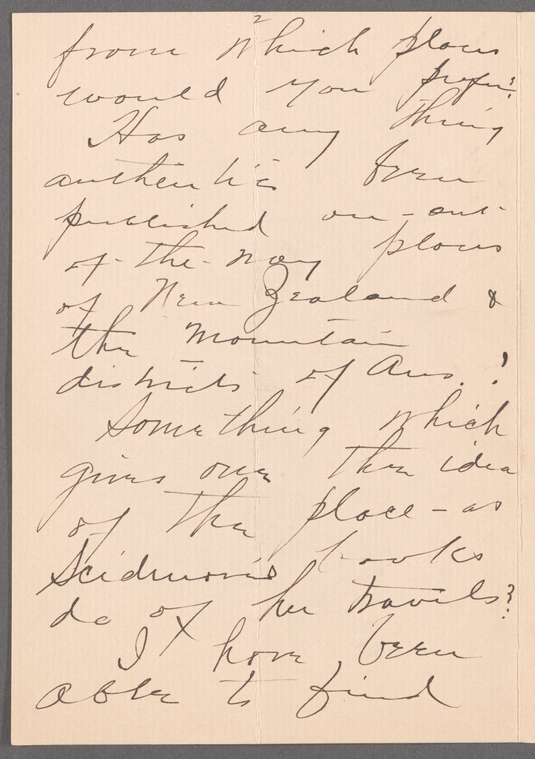 2
from which place
would you prefer?
Has any thing
authentic been
published on - out -
of - the - way places
of New Zealand &
the mountain
districts of Aus. ?
Something which
gives one the idea
of the place - as
Scidmore's books
do of her travels?
I have been
able to find